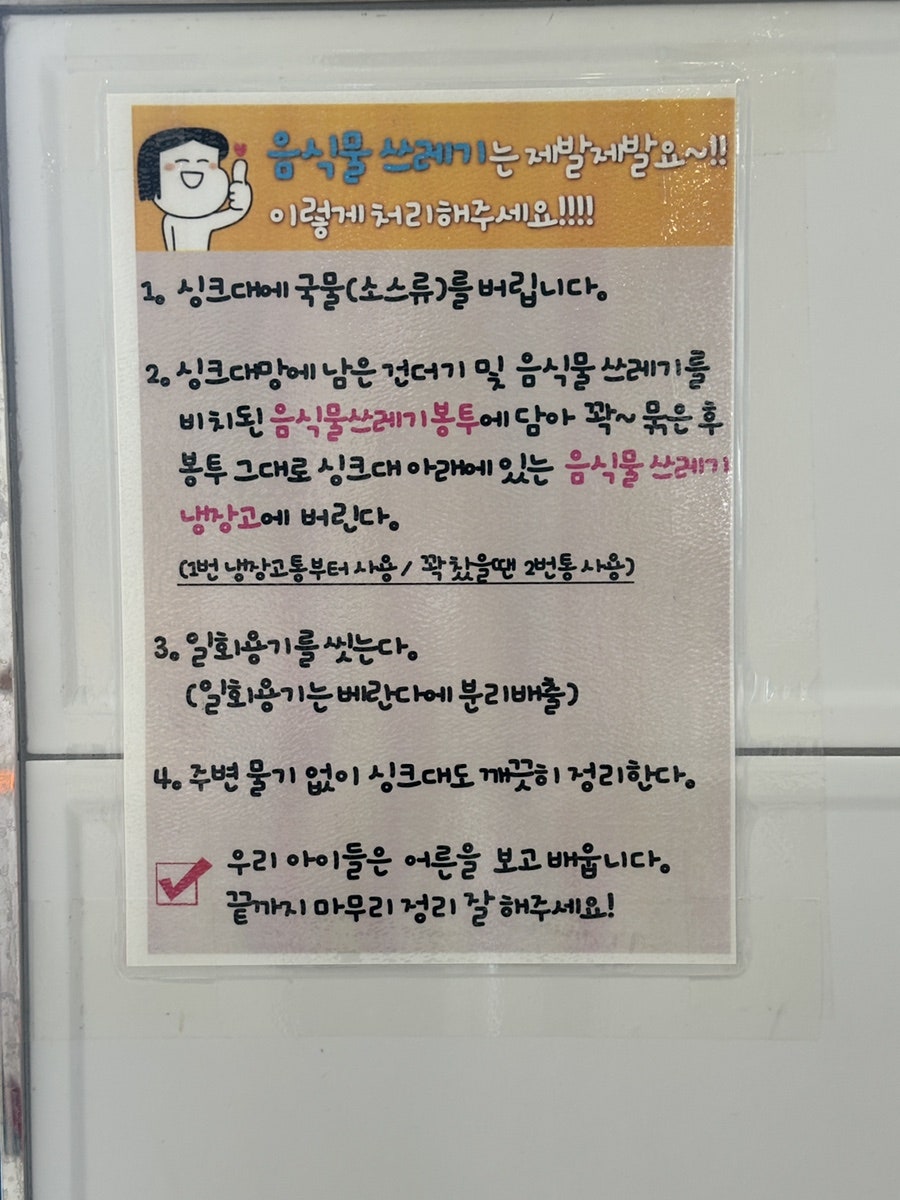 음식물 쓰레기는 제발제발요~!!
이렇게 처리해주세요!!!!
1. 싱크대에 국물(소스류)를 버립니다.
2. 싱크대망에 남은 건더기 및 음식물 쓰레기를
비치된 음식물쓰레기봉투에 담아 꽉~ 묶은 후
봉투 그대로 싱크대 아래에 있는 음식물 쓰레기
냉장고에 버린다.
(1번 냉장고통부터 사용 / 꽉 찼을땐 2번통 사용)
3. 일회용기를 씻는다.
(일회용기는 베란다에 분리배출)
4. 주변 물기 없이 싱크대도 깨끗히 정리한다.
우리 아이들은 어른을 보고 배웁니다.
끝까지 마무리 정리 잘 해주세요!